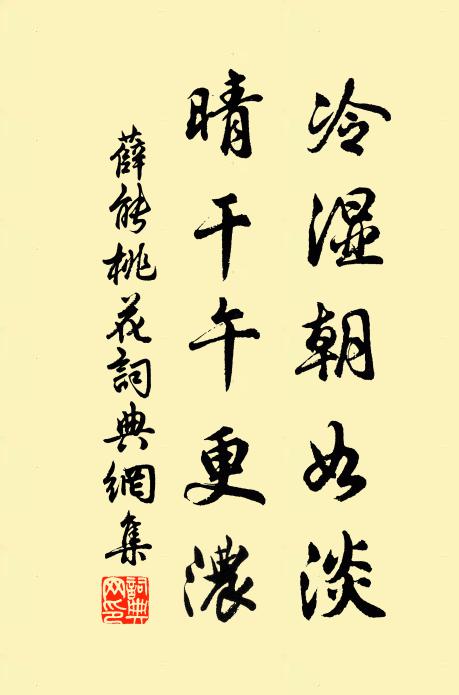 冷湿朝如淡
晴干午更濃
薛能桃花詞典網集
詞典網印